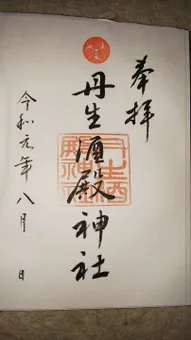 奉拝
丹生酒殿神社
令和元年八月 日